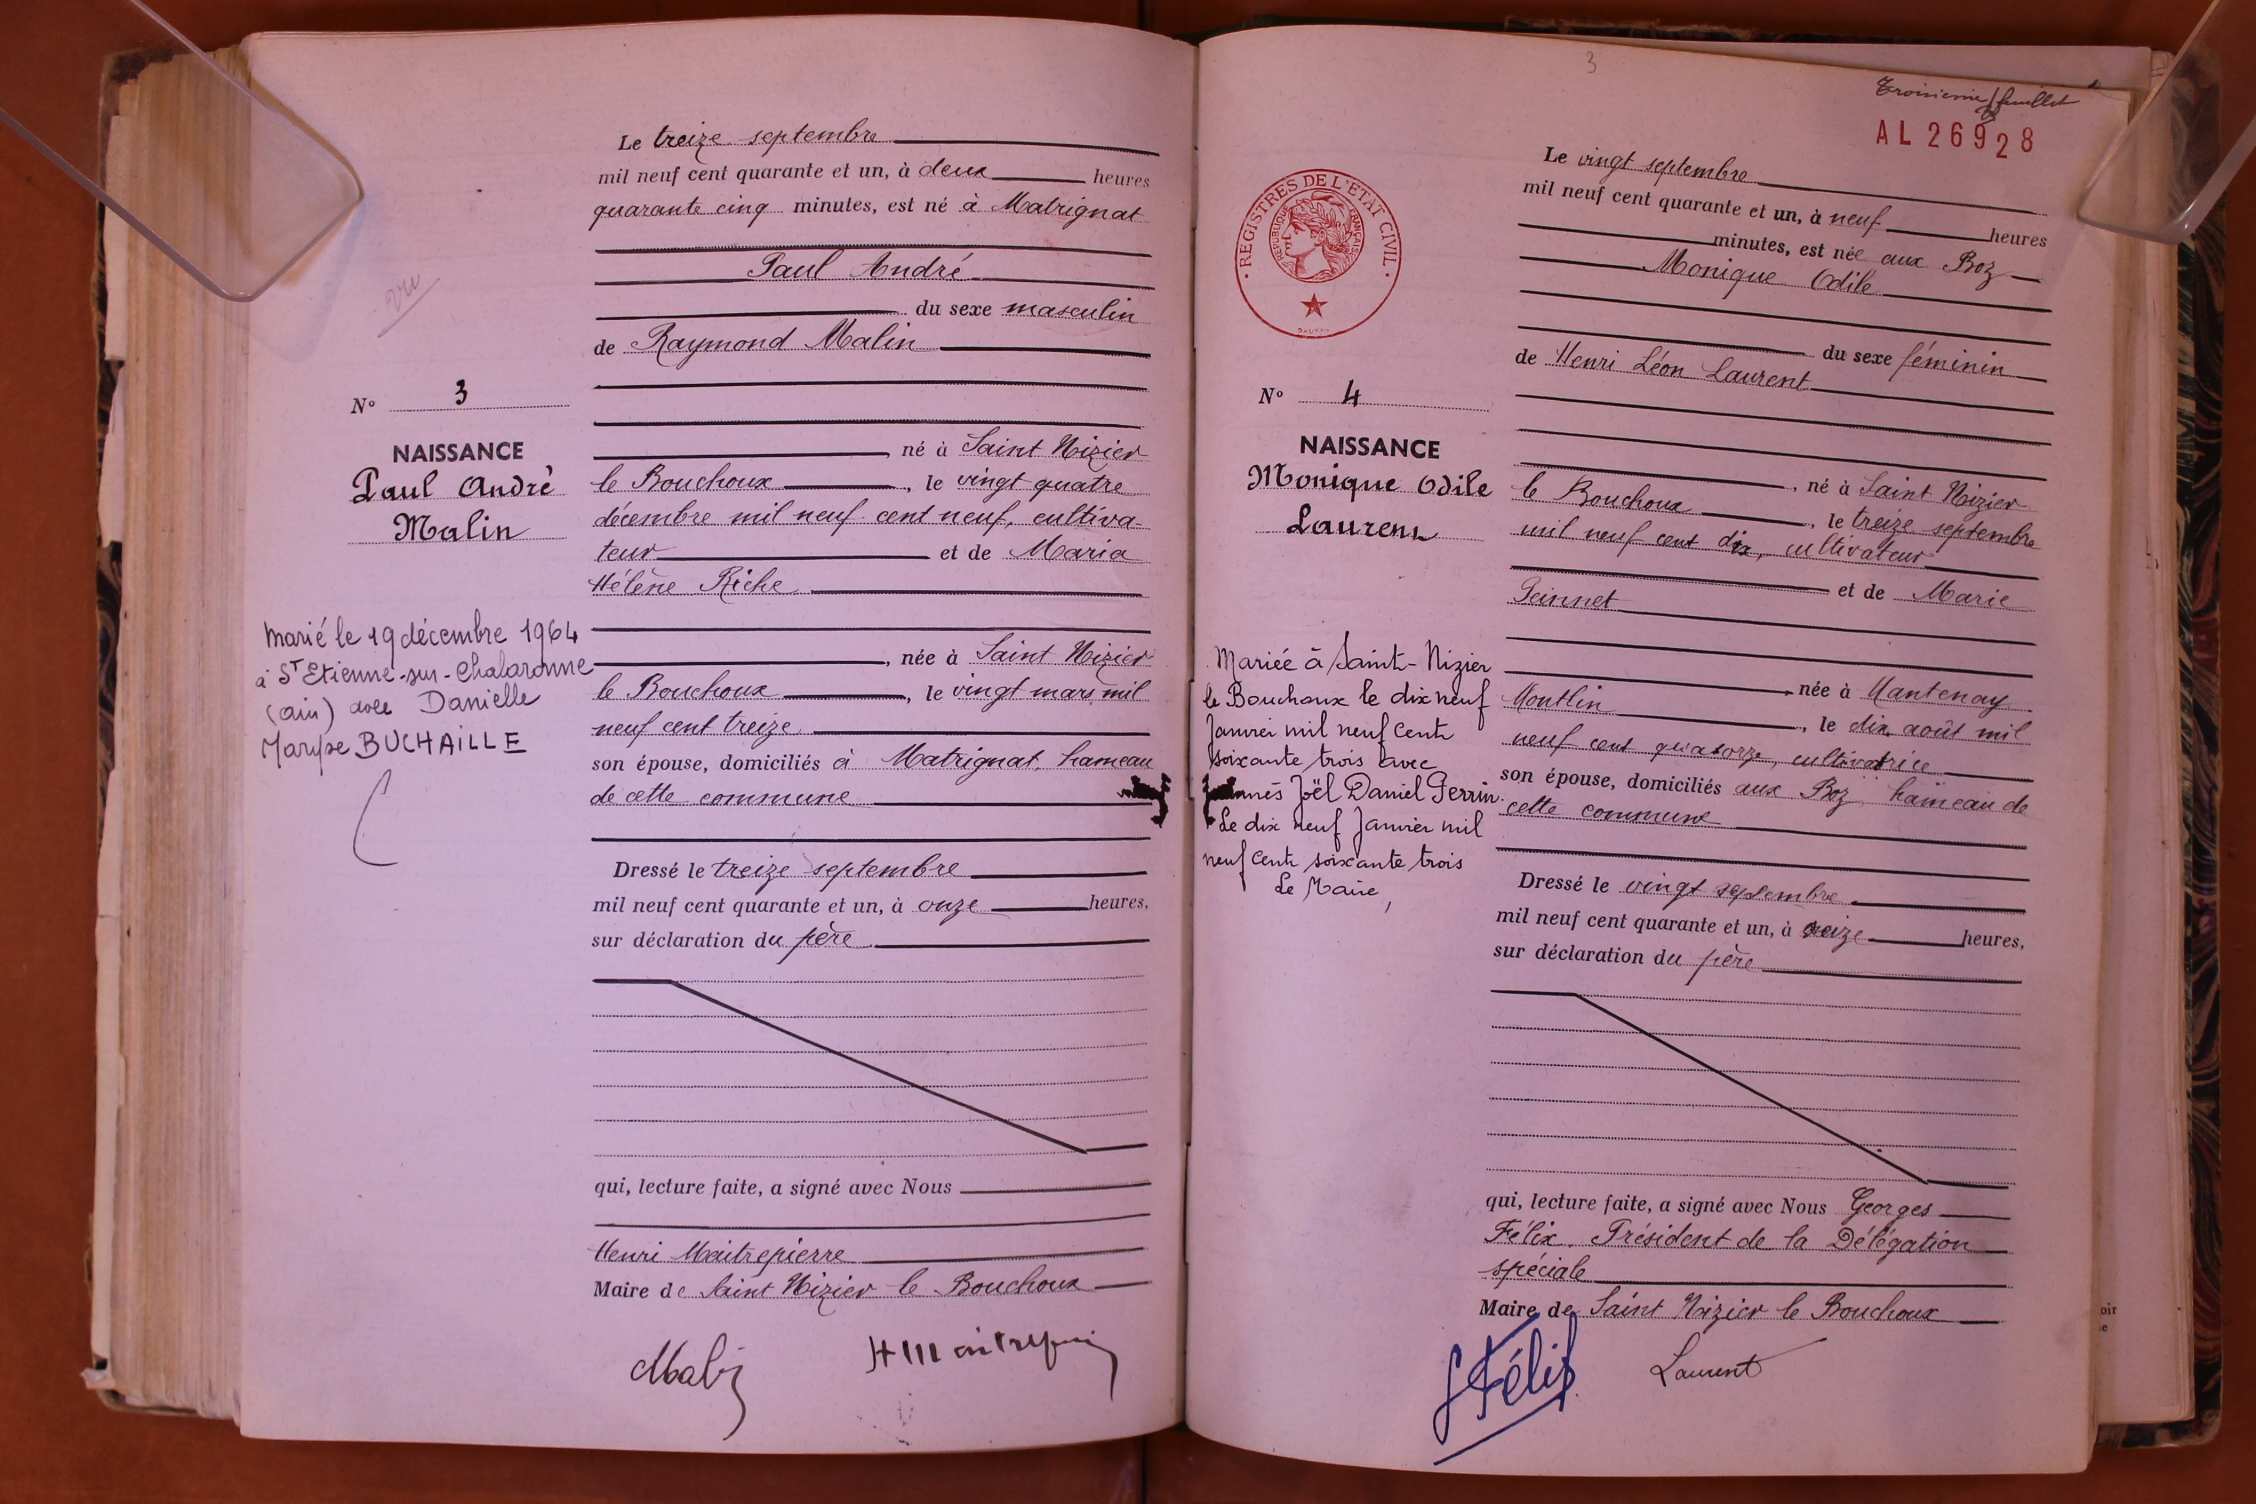 vu
Le treize septembre
mil neuf cent quarante et un, à deux heures
quarante cinq minutes, est né à Matrignat
Paul André
du sexe masculin
de Raymond Malin
N° 3
NAISSANCE
Paul André
Malin
né à Saint Nizier
le Bouchoux, le vingt quatre
décembre mil neuf cent neuf, cultiva-
teur et de Maria
Hélène Riche
, née à Saint Nizier
le Bouchoux, le vingt mars mil
neuf cent treize
son épouse, domiciliés à Matrignat, hameau
de cette commune
Marié le 19 décembre 1964
à St Etienne-sur-Chalaronne
(Ain) avec Danielle
Maryse BUCHAILLE
Dressé le treize septembre
mil neuf cent quarante et un, à onze heures,
sur déclaration du père
qui, lecture faite, a signé avec Nous
Henri Maitrepierre
Maire de Saint Nizier le Bouchoux
Malin
HMaitrepierre
3
Troisième feuillet
AL 26928
REGISTRES DE L'ETAT CIVIL
REPUBLIQUE FRANÇAISE
Le vingt septembre
mil neuf cent quarante et un, à neuf heures
minutes, est née aux Boz
Monique Odile
du sexe féminin
de Henri Léon Laurent
N° 4
NAISSANCE
Monique Odile
Laurent
, né à Saint Nizier
le Bouchoux, le treize septembre
mil neuf cent dix, cultivateur
et de Marie
Peinnet
née à Mantenay
Montlin, le dix août mil
neuf cent quatorze, cultivatrice
son épouse, domiciliés aux Boz hameau de
cette commune
Mariée à Saint-Nizier
le Bouchoux le dix neuf
Janvier mil neuf cent
soixante trois avec
Joël Daniel Perrin.
Le dix neuf Janvier mil
neuf cent soixante trois
Le Maire,
Dressé le vingt septembre
mil neuf cent quarante et un, à seize heures,
sur déclaration du père
qui, lecture faite, a signé avec Nous Georges
Félix, Président de la Délégation
spéciale
Maire de Saint Nizier le Bouchoux
Félix
Laurent